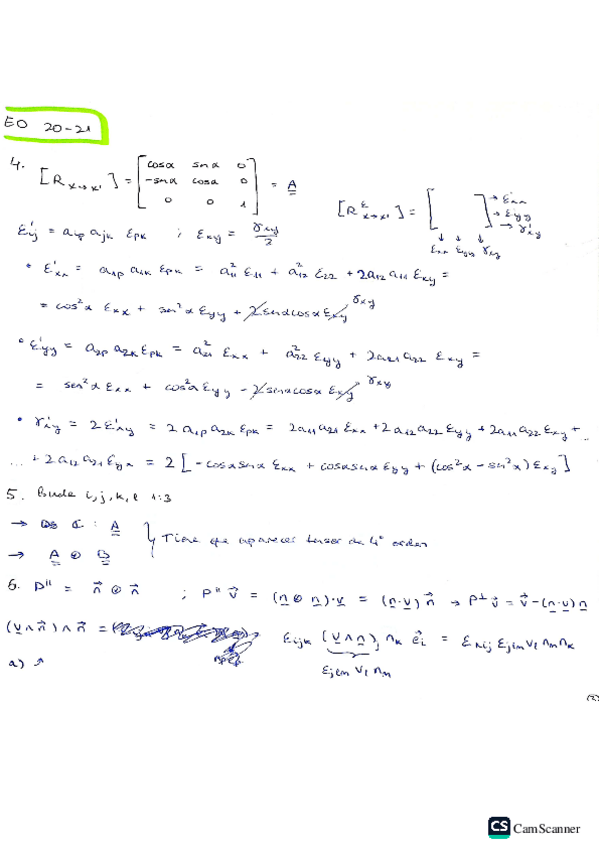 EO 20-21
4. [R x→x'] = [cosα senα 0 / -senα cosα 0 / 0 0 1] = A
[R^ε x→x'] = [ ] → ε'xx → ε'yy → γ'xy
εxx εyy γxy
ε'ij = aip ajk εpk ; εxy = γxy/2
• ε'xx = a1p a1k εpk = a²11 ε11 + a²12 ε22 + 2a12 a11 εxy =
= cos²α εxx + sen²α εyy + 2senαcosα εxy γxy
• ε'yy = a2p a2k εpk = a²21 εxx + a²22 εyy + 2a21 a22 εxy =
= sen²α εxx + cos²α εyy - 2senαcosα εxy γxy
• γ'xy = 2ε'xy = 2 a1p a2k εpk = 2a11 a21 εxx + 2a12 a22 εyy + 2a11 a22 εxy + ...
... + 2a12 a21 εyx = 2 [-cosαsenα εxx + cosαsenα εyy + (cos²α - sen²α) εxy]
5. Bucle i, j, k, l 1:3
→ C : A
→ A ⊗ B
Tiene que aparecer tensor de 4º orden
6. P" = n ⊗ n ; P" v = (n ⊗ n)·v = (n·v) n → P⊥ v = v - (n·v) n
(v ∧ n) ∧ n = εijk (v ∧ n)j nk ei = εkij εjlm vl nm nk
εjlm vl nm
a) ↗
CS CamScanner